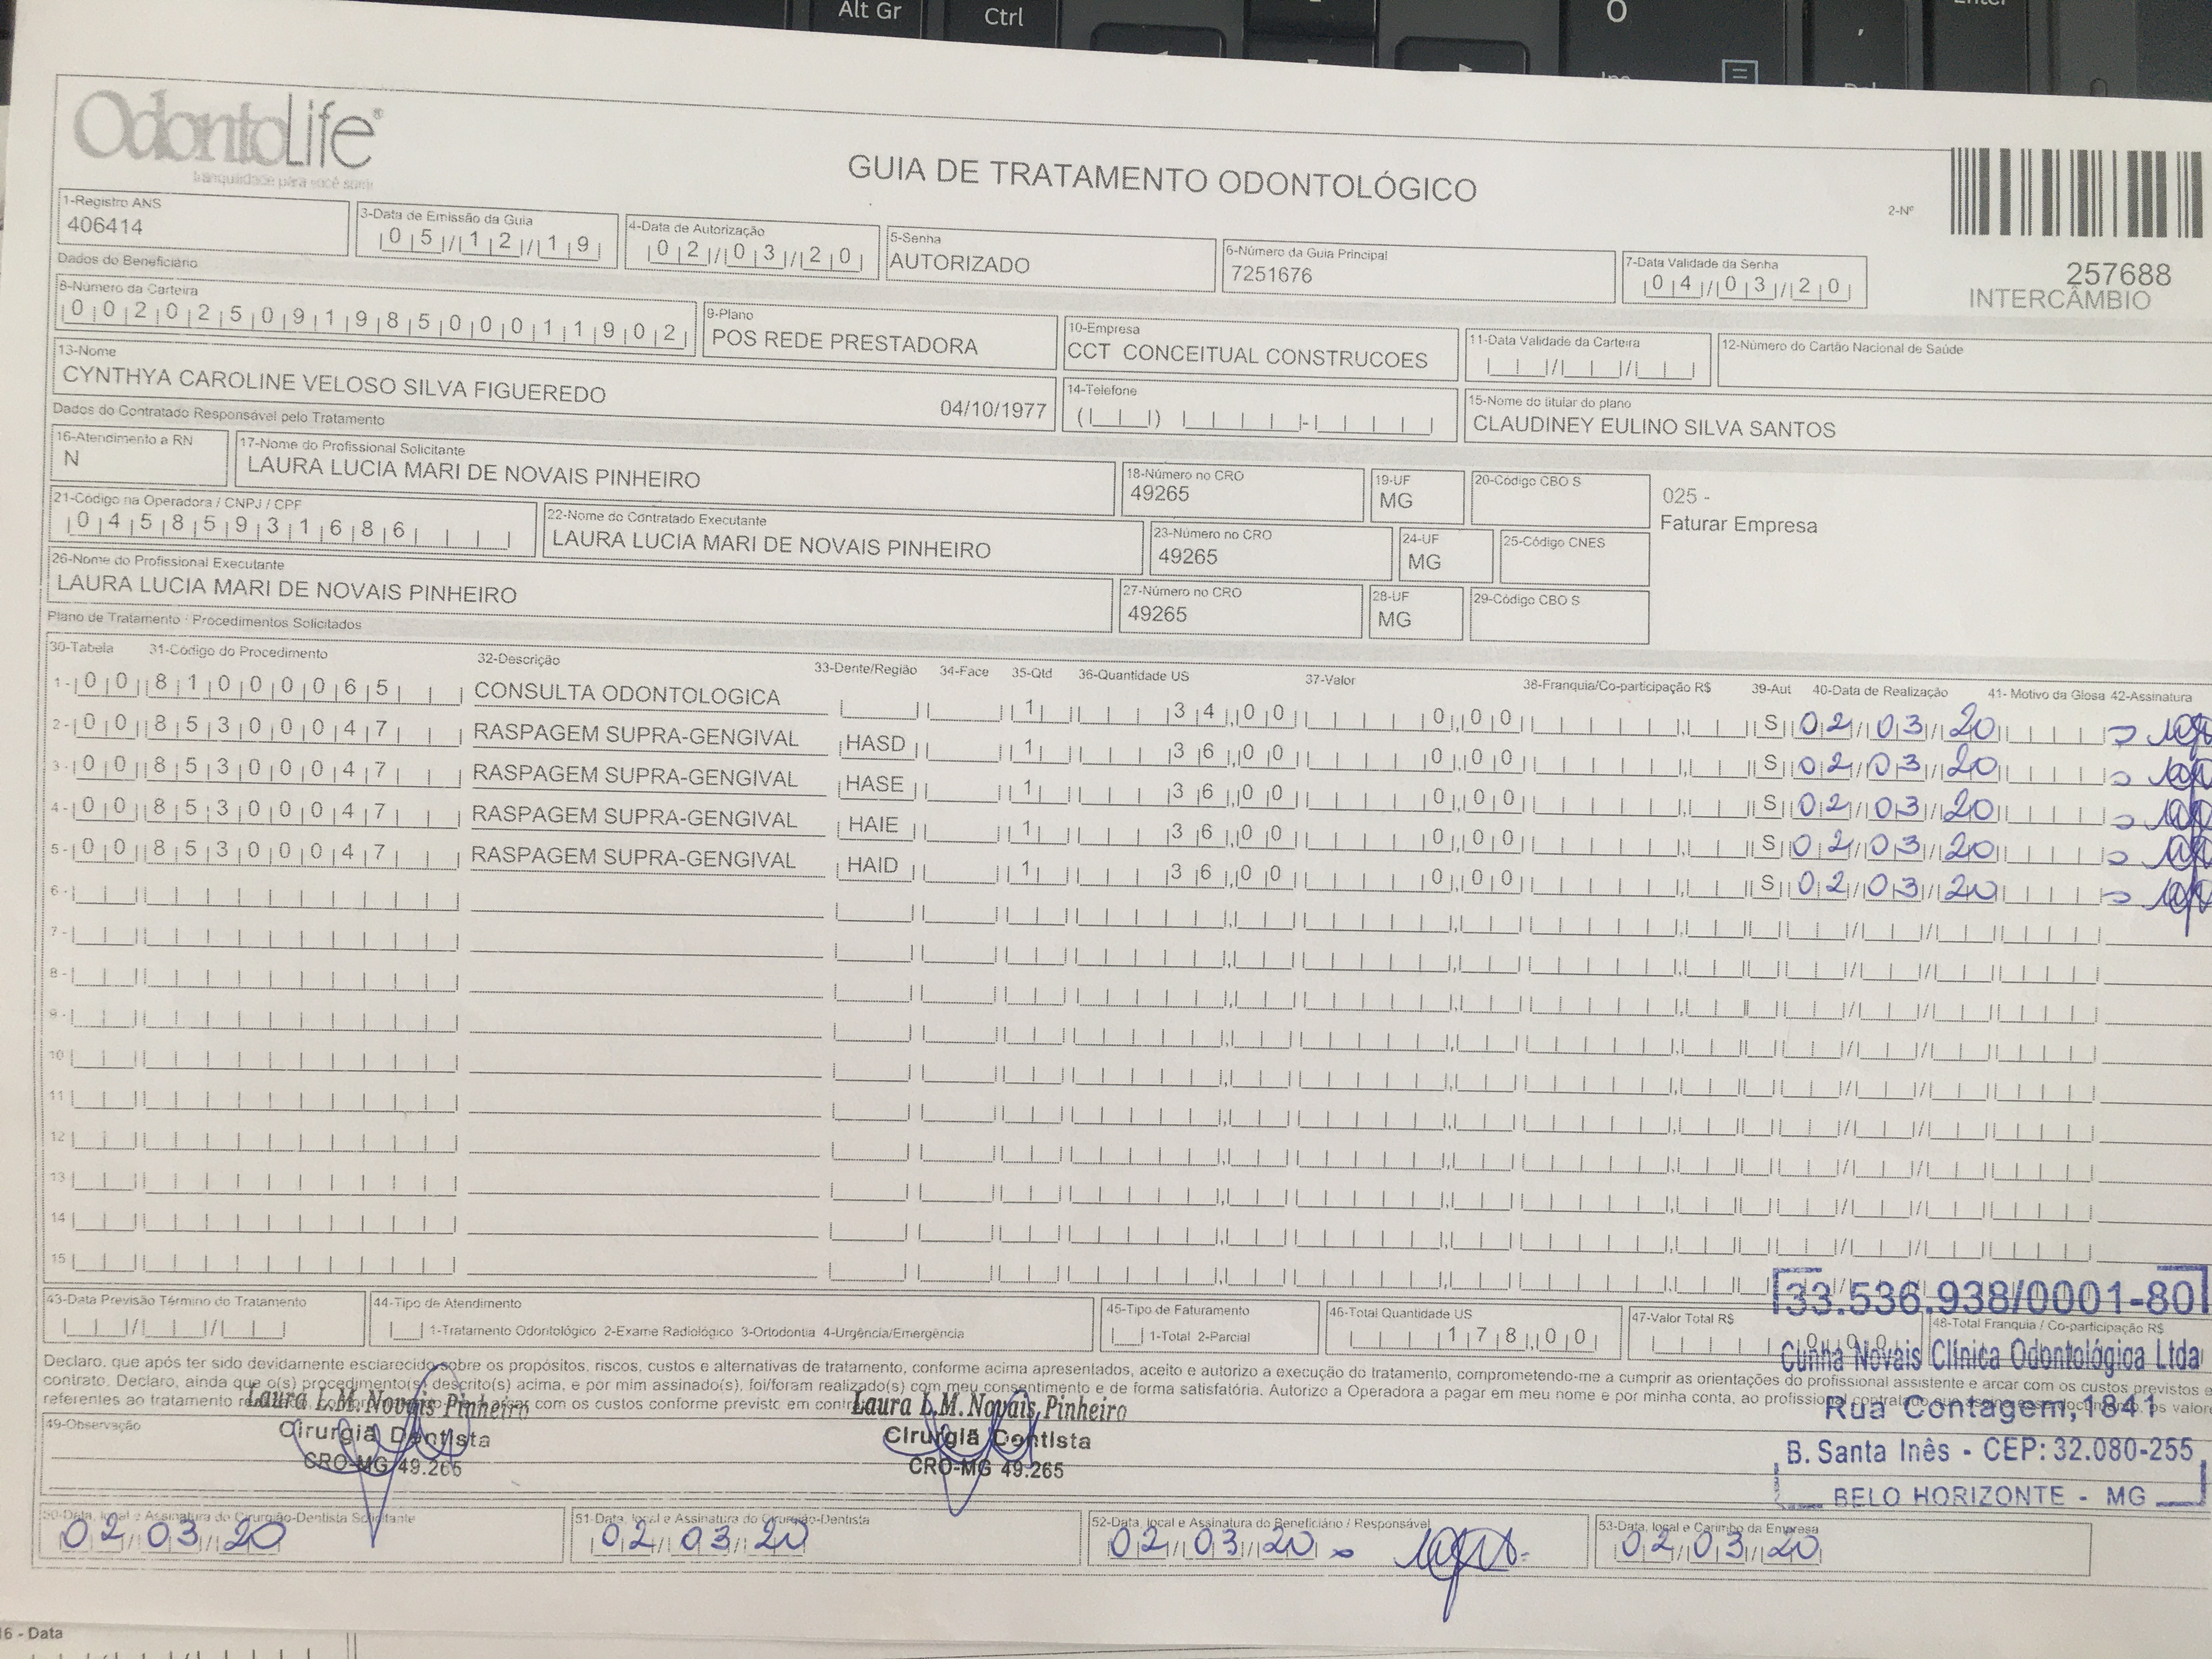 Alt Gr
Ctrl
O
Enter
OdontoLife
tranquilidade para você sorrir
GUIA DE TRATAMENTO ODONTOLÓGICO
2-Nº
257688
INTERCÂMBIO
1-Registro ANS
406414
3-Data de Emissão da Guia
05/12/19
4-Data de Autorização
02/03/20
5-Senha
AUTORIZADO
6-Número da Guia Principal
7251676
7-Data Validade da Senha
04/03/20
Dados do Beneficiário
8-Número da Carteira
00202509198500011902
9-Plano
POS REDE PRESTADORA
10-Empresa
CCT CONCEITUAL CONSTRUCOES
11-Data Validade da Carteira
12-Número do Cartão Nacional de Saúde
13-Nome
CYNTHYA CAROLINE VELOSO SILVA FIGUEREDO 04/10/1977
14-Telefone
15-Nome do titular do plano
CLAUDINEY EULINO SILVA SANTOS
Dados do Contratado Responsável pelo Tratamento
16-Atendimento a RN
N
17-Nome do Profissional Solicitante
LAURA LUCIA MARI DE NOVAIS PINHEIRO
18-Número no CRO
49265
19-UF
MG
20-Código CBO S
025 -
Faturar Empresa
21-Código na Operadora / CNPJ / CPF
04585931686
22-Nome do Contratado Executante
LAURA LUCIA MARI DE NOVAIS PINHEIRO
23-Número no CRO
49265
24-UF
MG
25-Código CNES
26-Nome do Profissional Executante
LAURA LUCIA MARI DE NOVAIS PINHEIRO
27-Número no CRO
49265
28-UF
MG
29-Código CBO S
Plano de Tratamento - Procedimentos Solicitados
30-Tabela 31-Código do Procedimento 32-Descrição 33-Dente/Região 34-Face 35-Qtd 36-Quantidade US 37-Valor 38-Franquia/Co-participação R$ 39-Aut 40-Data de Realização 41- Motivo da Glosa 42-Assinatura
1- 00 81000065 CONSULTA ODONTOLOGICA 1 34,00 0,00 S 02/03/20
2- 00 85300047 RASPAGEM SUPRA-GENGIVAL HASD 1 36,00 0,00 S 02/03/20
3- 00 85300047 RASPAGEM SUPRA-GENGIVAL HASE 1 36,00 0,00 S 02/03/20
4- 00 85300047 RASPAGEM SUPRA-GENGIVAL HAIE 1 36,00 0,00 S 02/03/20
5- 00 85300047 RASPAGEM SUPRA-GENGIVAL HAID 1 36,00 0,00 S 02/03/20
6-
7-
8-
9-
10
11
12
13
14
15
33.536.938/0001-80
43-Data Previsão Término do Tratamento
44-Tipo de Atendimento
1-Tratamento Odontológico 2-Exame Radiológico 3-Ortodontia 4-Urgência/Emergência
45-Tipo de Faturamento
1-Total 2-Parcial
46-Total Quantidade US
178,00
47-Valor Total R$
0,00
48-Total Franquia / Co-participação R$
Cunha Novais Clínica Odontológica Ltda
Declaro, que após ter sido devidamente esclarecido sobre os propósitos, riscos, custos e alternativas de tratamento, conforme acima apresentados, aceito e autorizo a execução do tratamento, comprometendo-me a cumprir as orientações do profissional assistente e arcar com os custos previstos e
contrato. Declaro, ainda que o(s) procedimento(s) descrito(s) acima, e por mim assinado(s), foi/foram realizado(s) com meu consentimento e de forma satisfatória. Autorizo a Operadora a pagar em meu nome e por minha conta, ao profissional contratado que assina esse documento, os valore
referentes ao tratamento arcar com os custos conforme previsto em
Rua Contagem, 1841
B. Santa Inês - CEP: 32.080-255
BELO HORIZONTE - MG
49-Observação
Laura L.M. Novais Pinheiro
Cirurgiã Dentista
CRO-MG 49.265
Laura L.M. Novais Pinheiro
Cirurgiã Dentista
CRO-MG 49.265
50-Data, local e Assinatura do Cirurgião-Dentista Solicitante
02/03/20
51-Data, local e Assinatura do Cirurgião-Dentista
02/03/20
52-Data, local e Assinatura do Beneficiário / Responsável
02/03/20
53-Data, local e Carimbo da Empresa
02/03/20
16 - Data